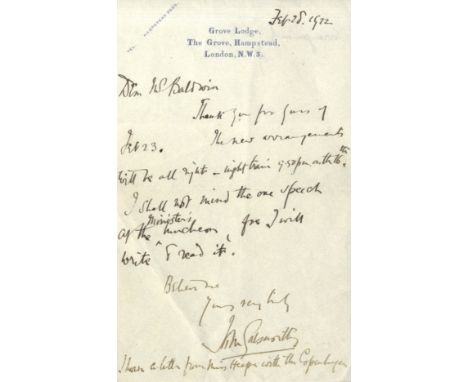 HAMPSTEAD
Feb. 28. 1922
Grove Lodge,
The Grove, Hampstead,
London, N.W.3.
Dear Mr Baldwin
Thank you for yours of
Feb 23. The new arrangements
will be all right – night train 9.50 pm with the
I shall not mind the one speech
at the Minister's luncheon, for I will
write & read it.
Believe me
Yours very truly
John Galsworthy
I have a letter from Miss with the Copenhagen